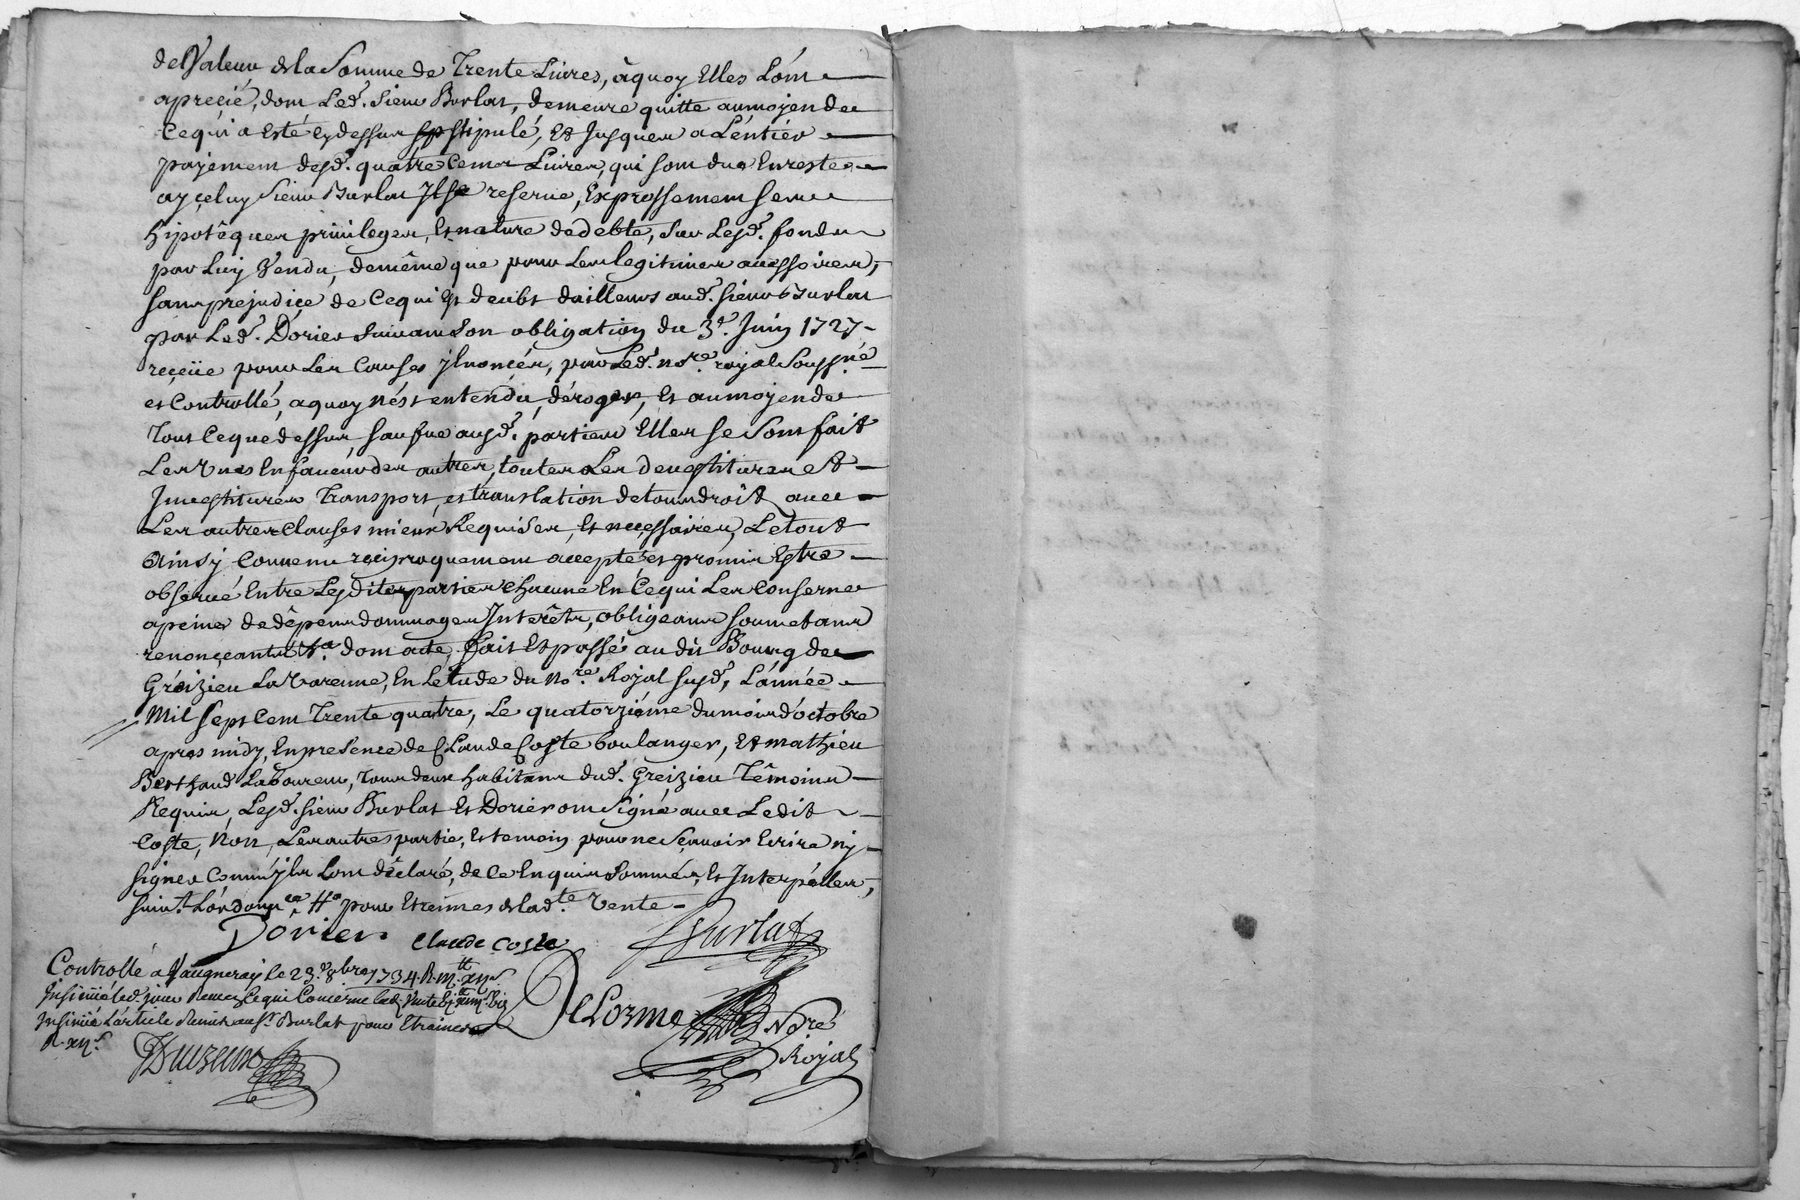 de Valeur de la Somme de Trente Livres, à quoy Elles Lont
aprecié, dont Led. Sieur Burlat, demeure quitte au moyen de
Ce qui a esté cy dessus stipulé, Et Jusques a L'éntiér
payement desd. quatre Cents Livres, qui sont dus En reste
a yçeluy Sieur Burlat Il se reserve, Expressement ses
hipotêques privileges, Et nature de debte, sur Lesd. fonds
par Luy Vendu, de même que pour Les legitimes acessoires,
sans prejudiçe de Ce qui Est deubt d'ailleurs aud. Sieur Burlat
par Led. Dorier suivant Son obligation du 3e. Juin 1727
reçeüe pour Les Causes y Enonçées, par Led. nore. royal Soussné
et Controllé, a quoy n'ést entendu déroger, Et au moyen de
Tout Ce que dessus, sauf ausd. parties Elles se Sont fait
Les Unes En faveur des autres, toutes Les devestitures Et
Investitures Transport, et translation de tous droits avec
Les autres clauses mieux Requises, Et neçessaires, Le tout
Ainsy Convenu reçiproquement accepté et promis Estre
observé Entre Lesdites parties chacune En Ce qui Les conserne
a peine de dêpens dommages Interêts, obligeants soumetants
renonçeants &a. dont acte, fait Et passé au dit Bourg de
Gréizieu La Varenne, En L'étude du Nore. Royal susd., L'année
Mil sept Cent Trente quatre, Le quatorziéme du mois d'octobre
apres midy, En presence de Claude Coste boulanger, Et mathieu
Berthaud Laboureur, Tous deux habitans dud. Greizieu Têmoins
Requis, Lesd. Sieur Burlat Et Dorier ont Signé avec Ledit
Coste, Non, Les autres partie, Et temoin pour ne Sçavoir Ecrire ny
signer Comm'ils L'ont déclaré, de Ce Enquis Sommés, Et Interpéllés,
suivt. L'ordonnce, pour Etreines de lad.te Vente
Dorier Claude Coste Burlat
Controllé a Vaugneray le 23e. 8bre 1734. R.
Insinüé led. jour
Insinüé L'article au Sr. Burlat pour Etraines
R. xijs.
DeLorme Nore
Royal